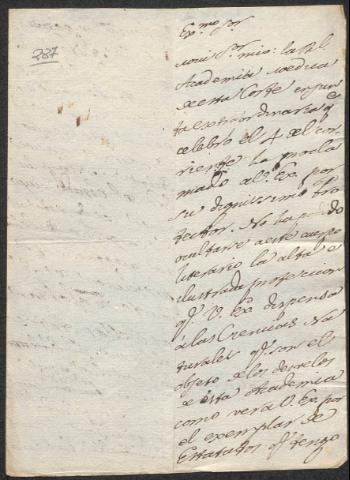 237
Exmo Sor
mui Sor mio: la Rl
Academia Medica
de esta Corte en jun
ta extraordinaria qe
celebró el 4 del cor
riente ha procla
mado a V. Exa por
su dignissimo Pro
tector. No ha podido
ocultarse a este cuerpo
literario la alta e
ilustrada proteccion
qe V. Exa dispensa
á las Ciencias Na
turales qe son el
objeto de los desvelos
de esta Academia
como verá V. Exa por
el exemplar de
Estatutos qe tengo